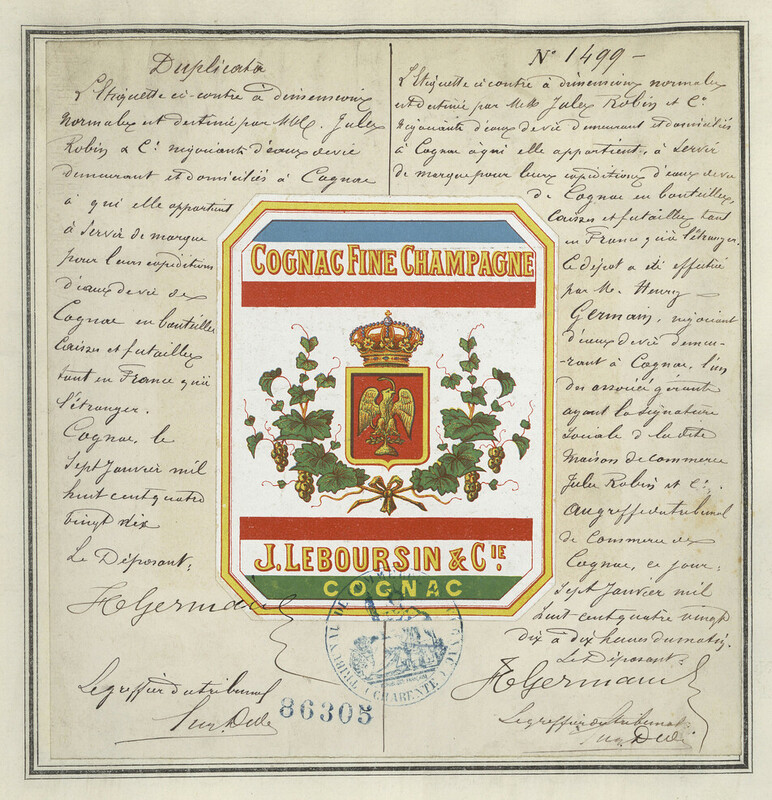 Duplicata
L'Etiquette ci-contre à dimensions
normales est destinée par MM. Jules
Robin & Cie négociants d'eaux de vie
demeurant et domiciliés à Cognac
à qui elle appartient
à servir de marque
pour leurs expéditions
d'eaux de vie de
Cognac en bouteilles
caisses et futailles
tant en France qu'à
l'étranger.
Cognac, le
sept Janvier mil
huit cent quatre
vingt dix
Le Déposant:
H Germain
Le greffier du tribunal
86305
COGNAC FINE CHAMPAGNE
J. LEBOURSIN & CIE.
COGNAC
TRIBUNAL DE
CHARENTE
No 1499 -
L'Etiquette ci contre à dimensions normales
est destinée par MM Jules Robin et Cie
négociants d'eaux de vie demeurant et domiciliés
à Cognac à qui elle appartient, à servir
de marque pour leurs expéditions d'eaux de vie
de Cognac en bouteilles,
caisses et futailles tant
en France qu'à l'étranger.
Le dépôt a été effectué
par M. Henry
Germain, négociant
d'eaux de vie demeu-
-rant à Cognac, l'un
des associés gérants
ayant la signature
sociale de la dite
Maison de commerce
Jules Robin et Cie.
au greffe du tribunal
de Commerce de
Cognac, ce jour:
sept Janvier mil
huit cent quatre vingt
dix à dix heures du matin.
Le Déposant:
H Germain
Le greffier du tribunal: